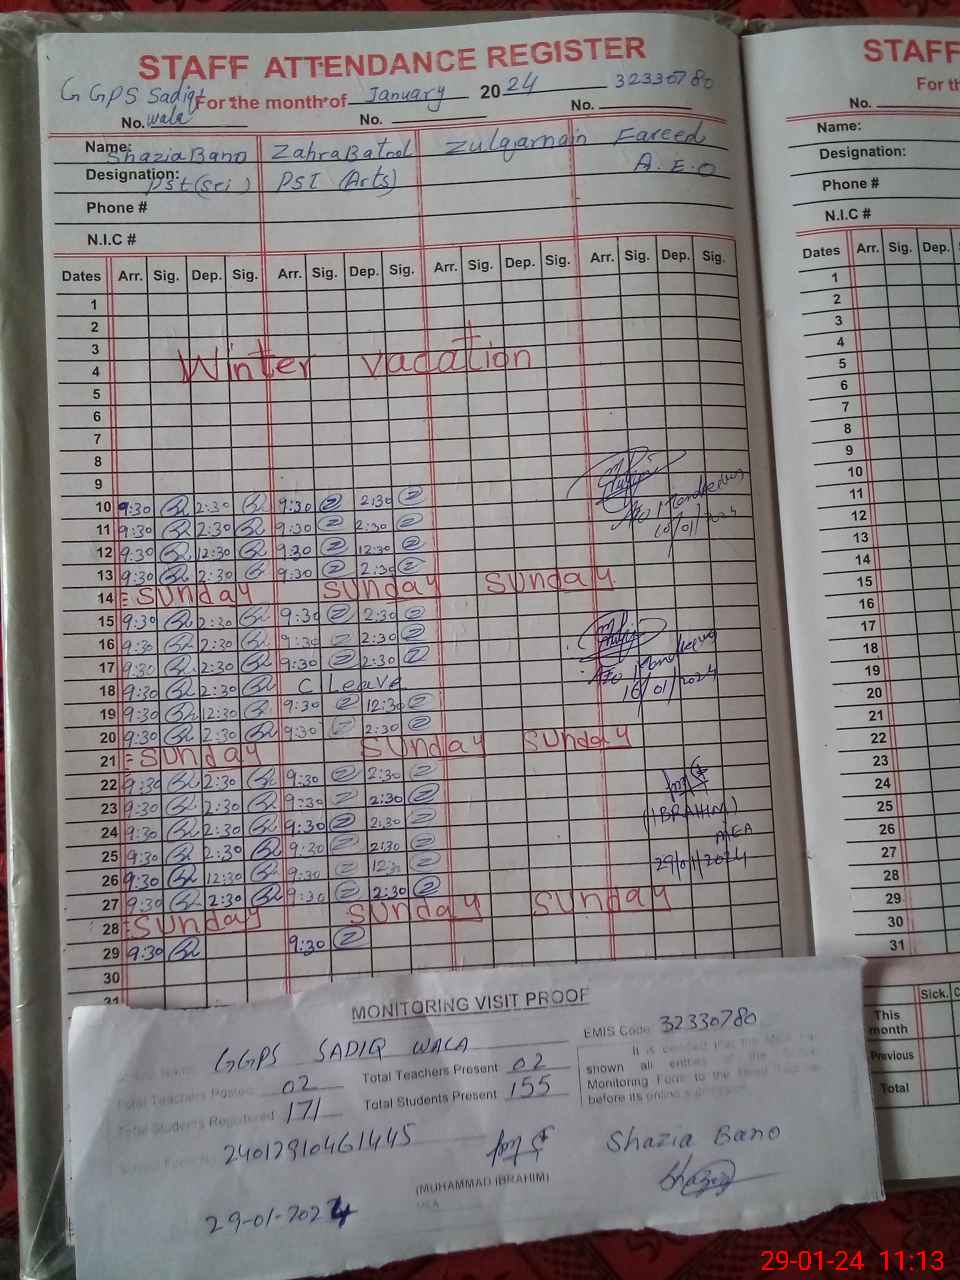 STAFF ATTENDANCE REGISTER
GGPS Sadiq wala
For the month of January 2024 32330780
No. No. No.
Name: Shazia Bano Zahra Batool Zulqarnain Fareed
Designation: Pst (Sci) PST (Arts) A.E.O
Phone #
N.I.C #
Dates Arr. Sig. Dep. Sig. Arr. Sig. Dep. Sig. Arr. Sig. Dep. Sig. Arr. Sig. Dep. Sig.
1
2
3
Winter vacation
4
5
6
7
8
9
10 9:30 2:30 9:30 2:30
11 9:30 2:30 9:30 2:30
12 9:30 12:30 9:30 12:30
10/01/2024
13 9:30 2:30 9:30 2:30
14 = Sunday Sunday Sunday
15 9:30 2:30 9:30 2:30
16 9:30 2:30 9:30 2:30
17 9:30 2:30 9:30 2:30
18 9:30 2:30 C Leave
16/01/2024
19 9:30 12:30 9:30 12:30
20 9:30 2:30 9:30 2:30
21 = Sunday Sunday Sunday
22 9:30 2:30 9:30 2:30
23 9:30 2:30 9:30 2:30
(IBRAHIM)
24 9:30 2:30 9:30 2:30
MEA
25 9:30 2:30 9:30 2:30
29/01/2024
26 9:30 12:30 9:30 12:30
27 9:30 2:30 9:30 2:30
28 = Sunday Sunday Sunday
29 9:30 9:30
30
31
MONITORING VISIT PROOF
GGPS SADIQ WALA EMIS Code 32330780
Total Teachers Posted 02 Total Teachers Present 02
Total Students Registered 171 Total Students Present 155
It is certified that the MEA has
shown all entries of the
Monitoring Form to the Head Teacher
before its online
24012910461445
Shazia Bano
(MUHAMMAD IBRAHIM)
MEA
29-01-2024
STAFF
For th
No.
Name:
Designation:
Phone #
N.I.C #
Dates Arr. Sig. Dep. S
1
2
3
4
5
6
7
8
9
10
11
12
13
14
15
16
17
18
19
20
21
22
23
24
25
26
27
28
29
30
31
Sick. C
This month
Previous
Total
29-01-24 11:13